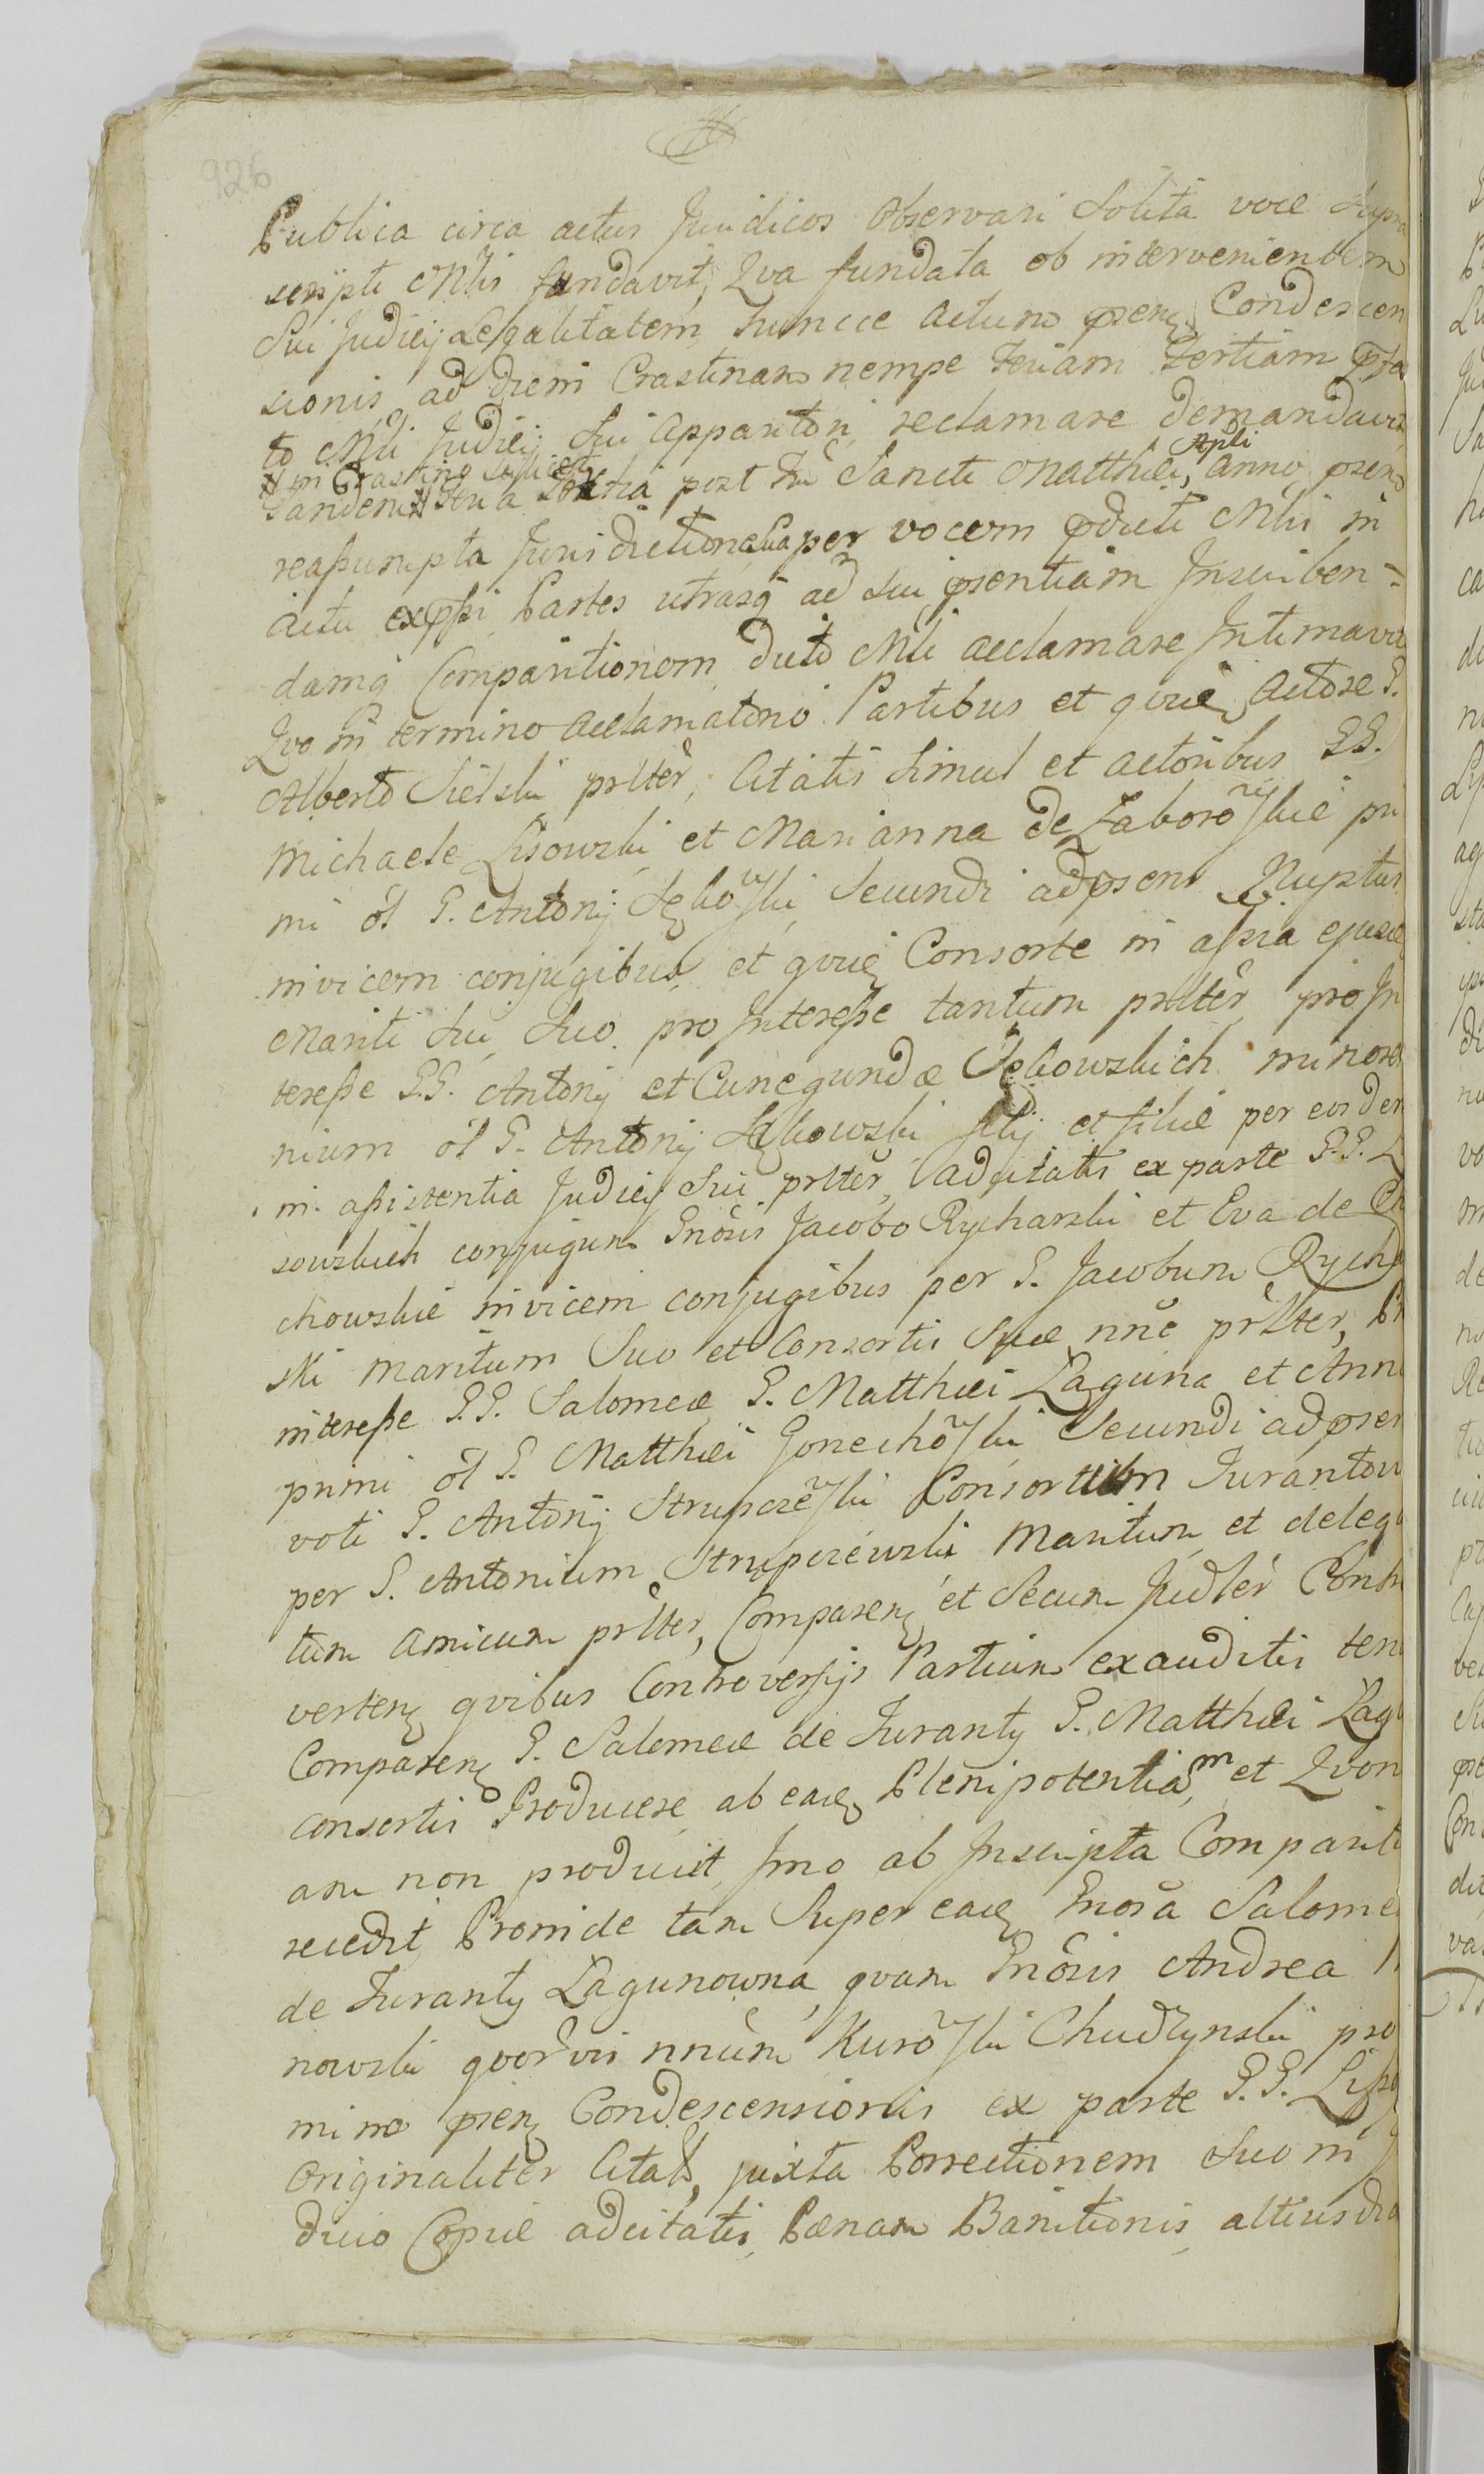 926
Publica circa actus Juridicos observari solita voce supra
scripti Mlis fundavit, Qva fundata ob intervenientem
Sui Judicij Legalitatem huncce actum psens Condescen
sionis ad diem Crastinam nempe Feriam Tertiam pfa
to Mli Judicij Sui Apparitori reclamare demandavit
# in Crastino scilicet Apli
Tandem # Feria Tertia post Fm Sancti Matthæi, anno psen
reaßumpta Jurisdictione sua per vocem pdicti Mlis in
actu expssi Partes utrasq ad sui psentiam Inscriben=
damq Comparitionem dicto Mli acclamare Intimavit
Qvo in termino acclamationis Partibus et qvidem Actore G.
Alberto Sielski prltèr, Citatis simul et actoribus GG.
Michaele Lisowski et Marianna de Zaborowskie pri
mi ol G. Antonij Sękowski Secundi ad psens Nuptus
invicem conjugibus, et qvidem Consorte in assza ejusde
Mariti sui, suo pro Intereße tantum prltèr, pro In
tereße G.G. Antonij et Cunegundæ Sękowskich minore
nium ol G. Antonij Sękowski filij et filiæ per eosdem
in aßistentia Judicij sui prltèr, adcitatis ex parte G.G. Li
sowskich conjugum Gnosis Jacobo Rycharski et Eva de
chowskie invicem conjugibus per G. Jacobum Rycha
ski maritum suo et Consortis suæ nne prltèr,
intereße G.G. Salomeæ G. Matthæi Laguna et Ann
primi ol G. Matthæi Gonechowski Secundi ad psen
voti G. Antonij Strupczewski Consortum Furantow
per G. Antonium Strupczewski Maritum et delega
tum amicum prltèr, Comparen et secum Judlèr Contro
verten qvibus Controversijs Partium exauditis ten
Comparen G. Salomeæ de Furanty G. Matthæi Lagu
consortis Producere ab eadem Plenipotentiam, et Qvon
am non produxit, Imo ab Inscripta Compariti
recedit Proinde tam super eadem Gnosa Salomea
de Furanty Lagunowna, qvam Gnosis Andrea
nowski qvorvis nnum Kurowski Chudzynski pro
mino psen Condescensionis ex parte G.G. Liso
Originaliter Citatis, juxta Correctionem suo in
dicio Copiæ adcitatis, Pænam Banitionis altius